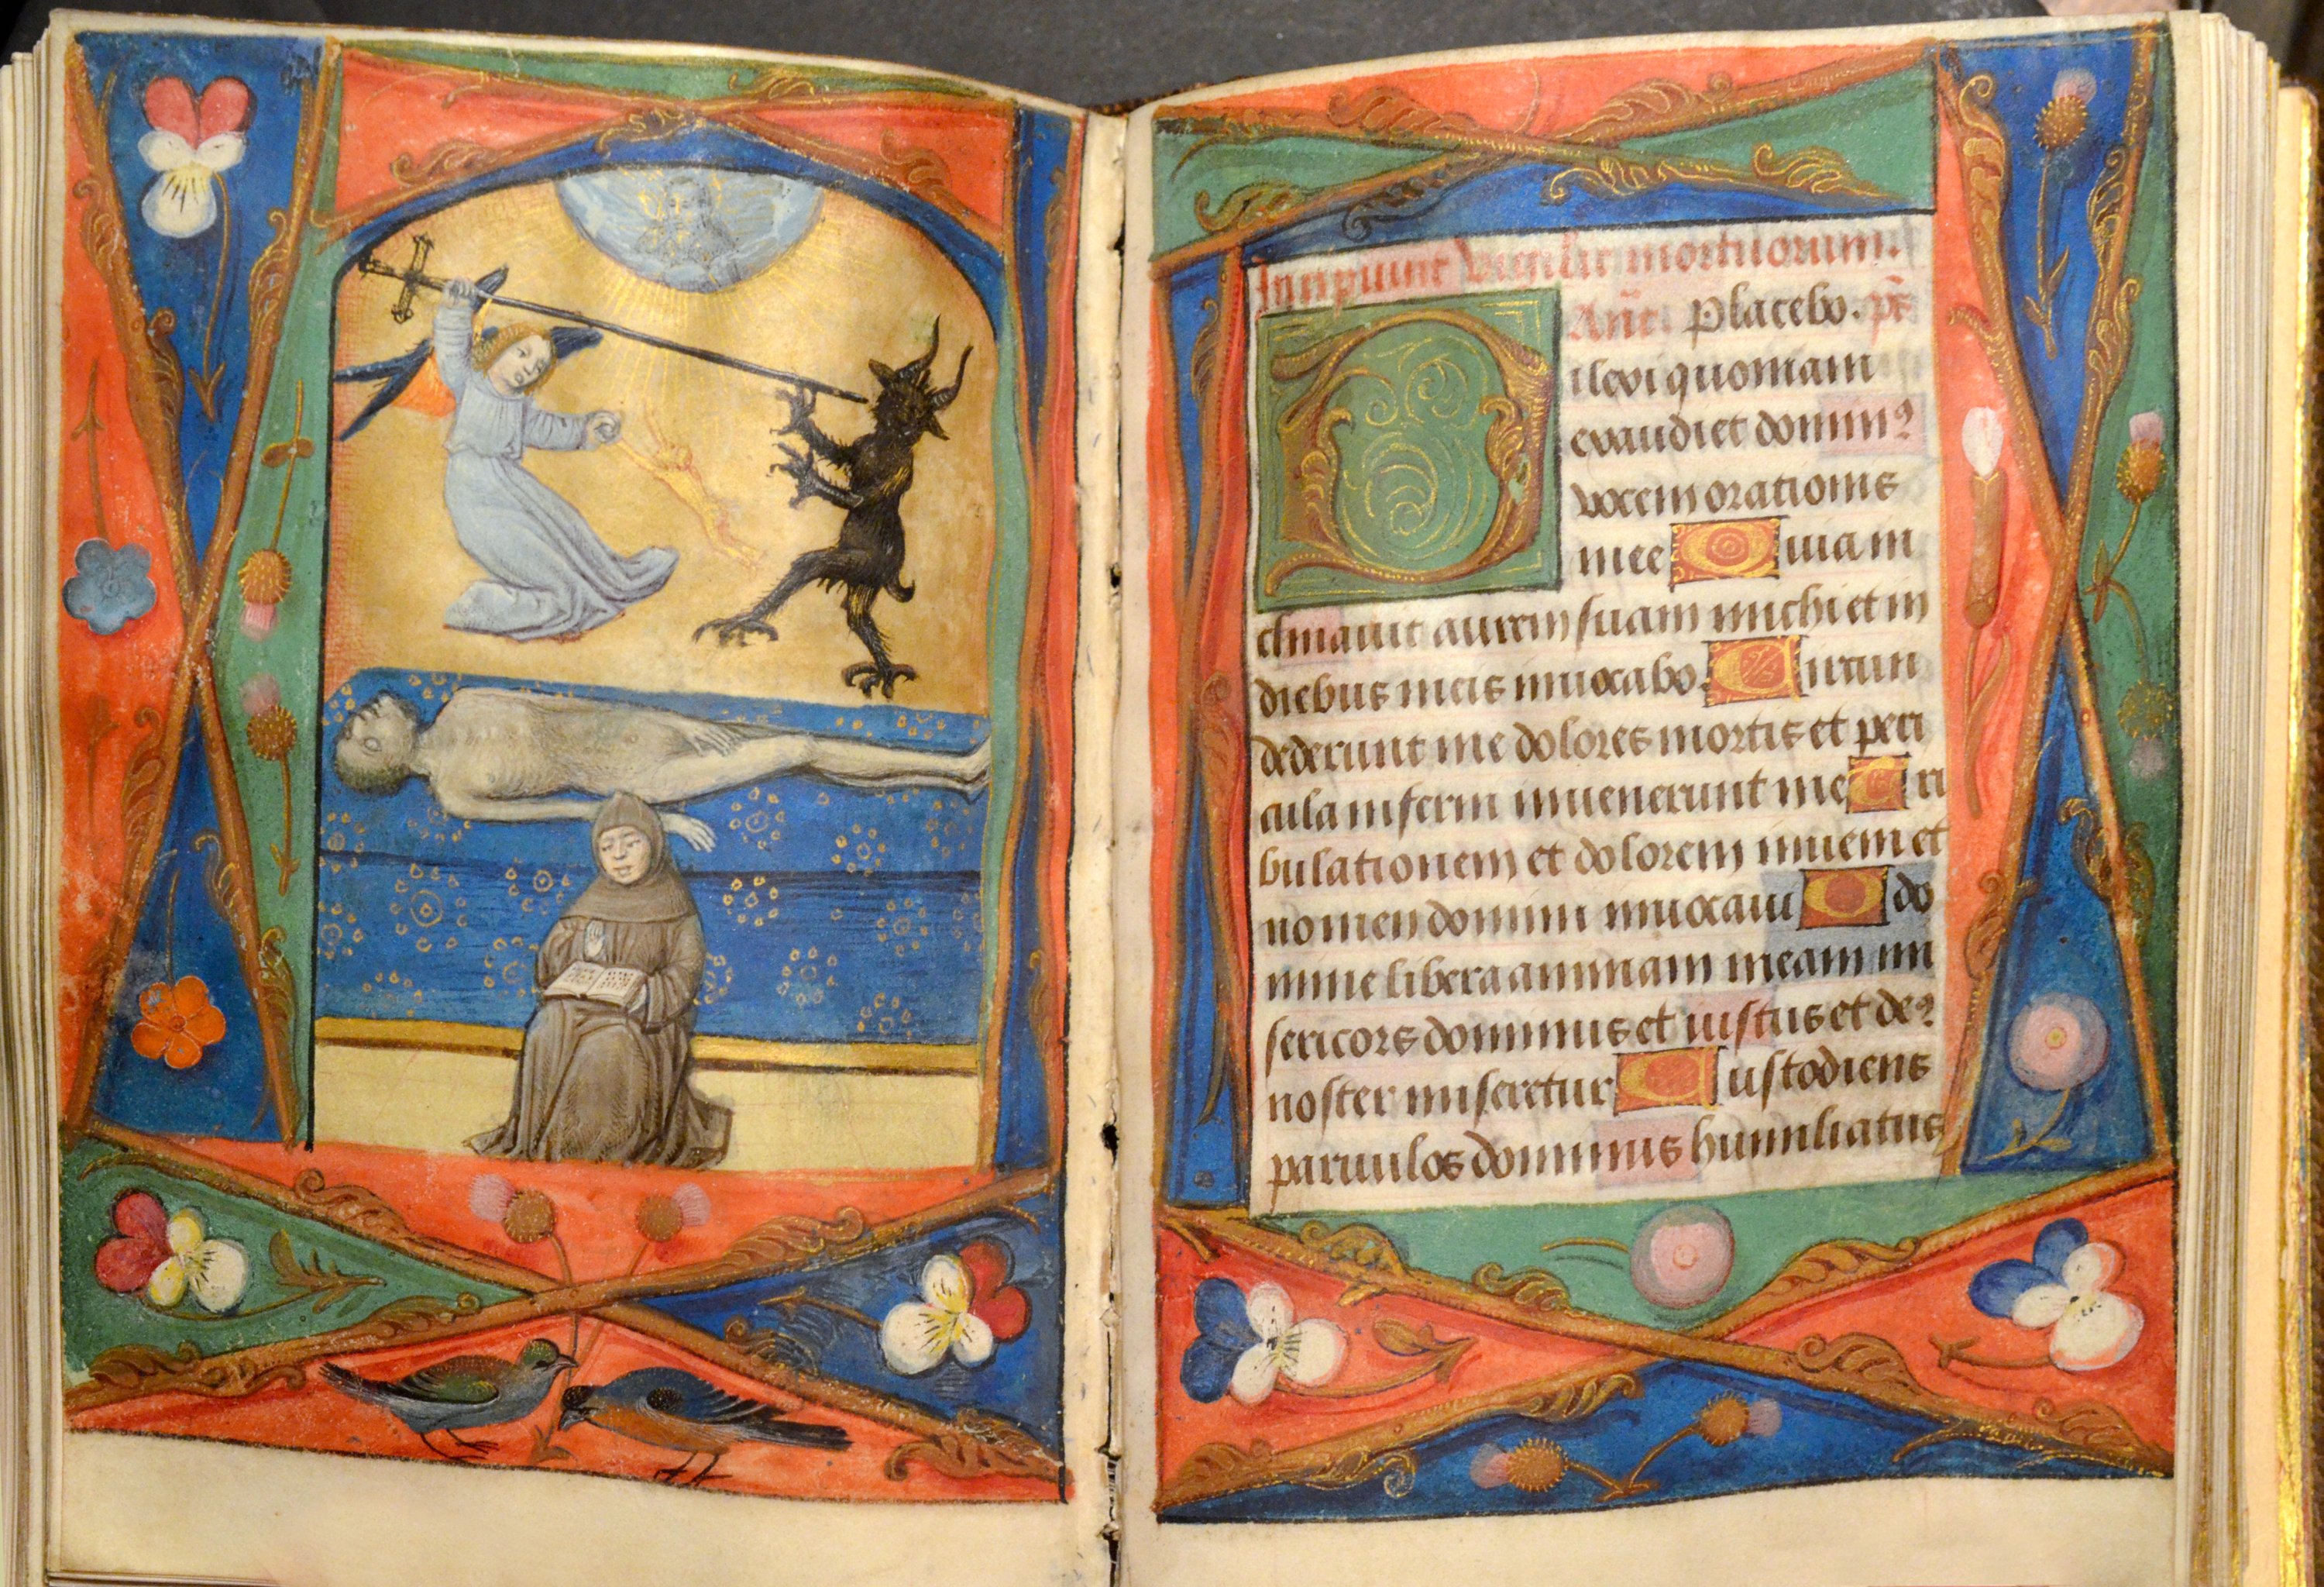 Incipiunt vigilie mortuorum.
Añt. Placebo. ps̄
Dilexi quoniam
exaudiet domin⁹
vocem orationis
mee Quiam
clinauit aurem suam michi et in
diebus meis inuocabo. Circun
dederunt me dolores mortis et peri
cula inferni inuenerunt me Tri
bulationem et dolorem inueni et
nomen domini inuocaui O do
mine libera animam meam mi
sericors dominus et iustus et de⁹
noster miseretur Custodiens
paruulos dominus humiliatus